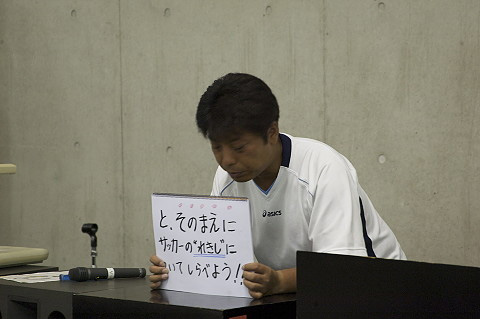 と、そのまえに
サッカーの"れきし"に
いてしらべよう!!
asics